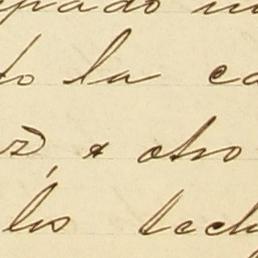 pado
to la ca
rz, & otro
les tech